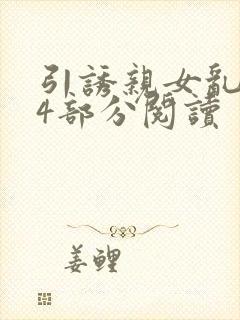 引誘親女亂
4部分閱讀
姜鲤